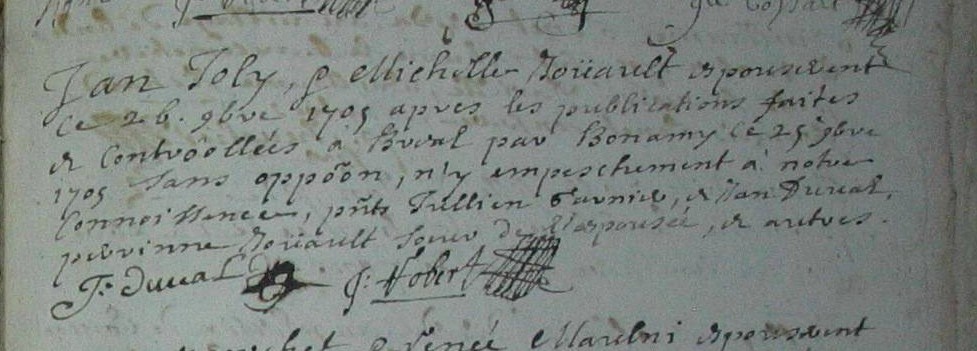 Jan Joly, & Michelle Joüault espouserent
ce 26. 9bre 1705 apres les publications faites
& Controollées à Breal par Bonamy ce 25 9bre
1705 sans oppoõn, n'y empeschement à notre
Connoissence, pñts Jullien Garnier, & Jan Duval,
perrinne Joüault soeur de l'espousée, & autres.
J: Duval J: Hobert
& renée espouserent